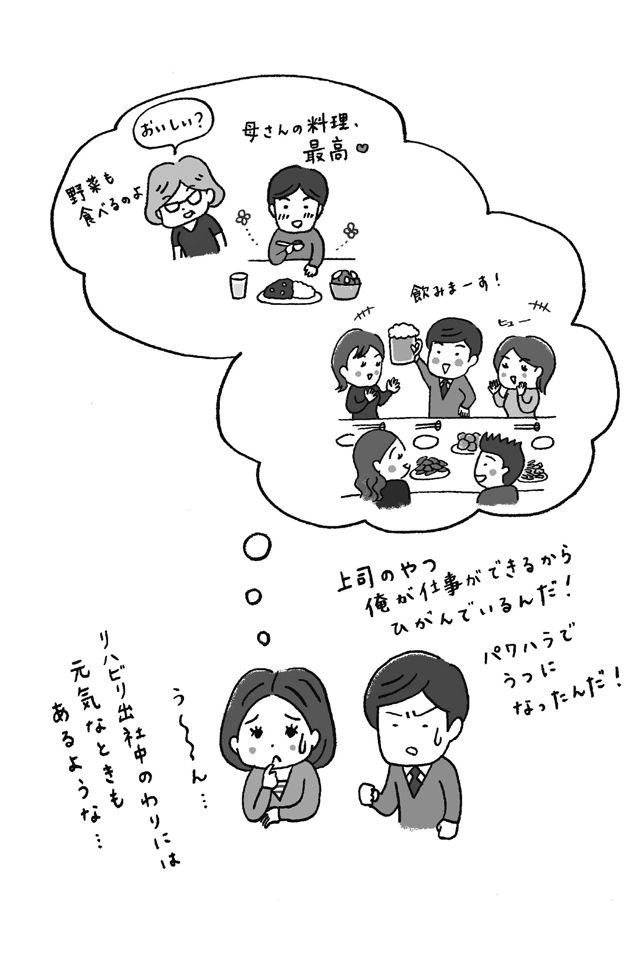 おいしい?
母さんの料理、
最高♥
野菜も
食べるのよ
飲みまーす!
ヒュー
上司のやつ
俺が仕事ができるから
ひがんでいるんだ!
パワハラで
うつに
なったんだ!
う〜〜ん…
リハビリ出社中のわりには
元気なときも
あるような…